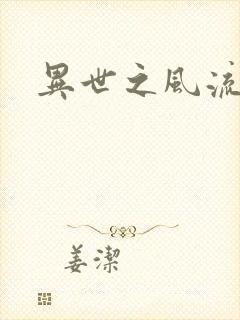 異世之風流
姜潔